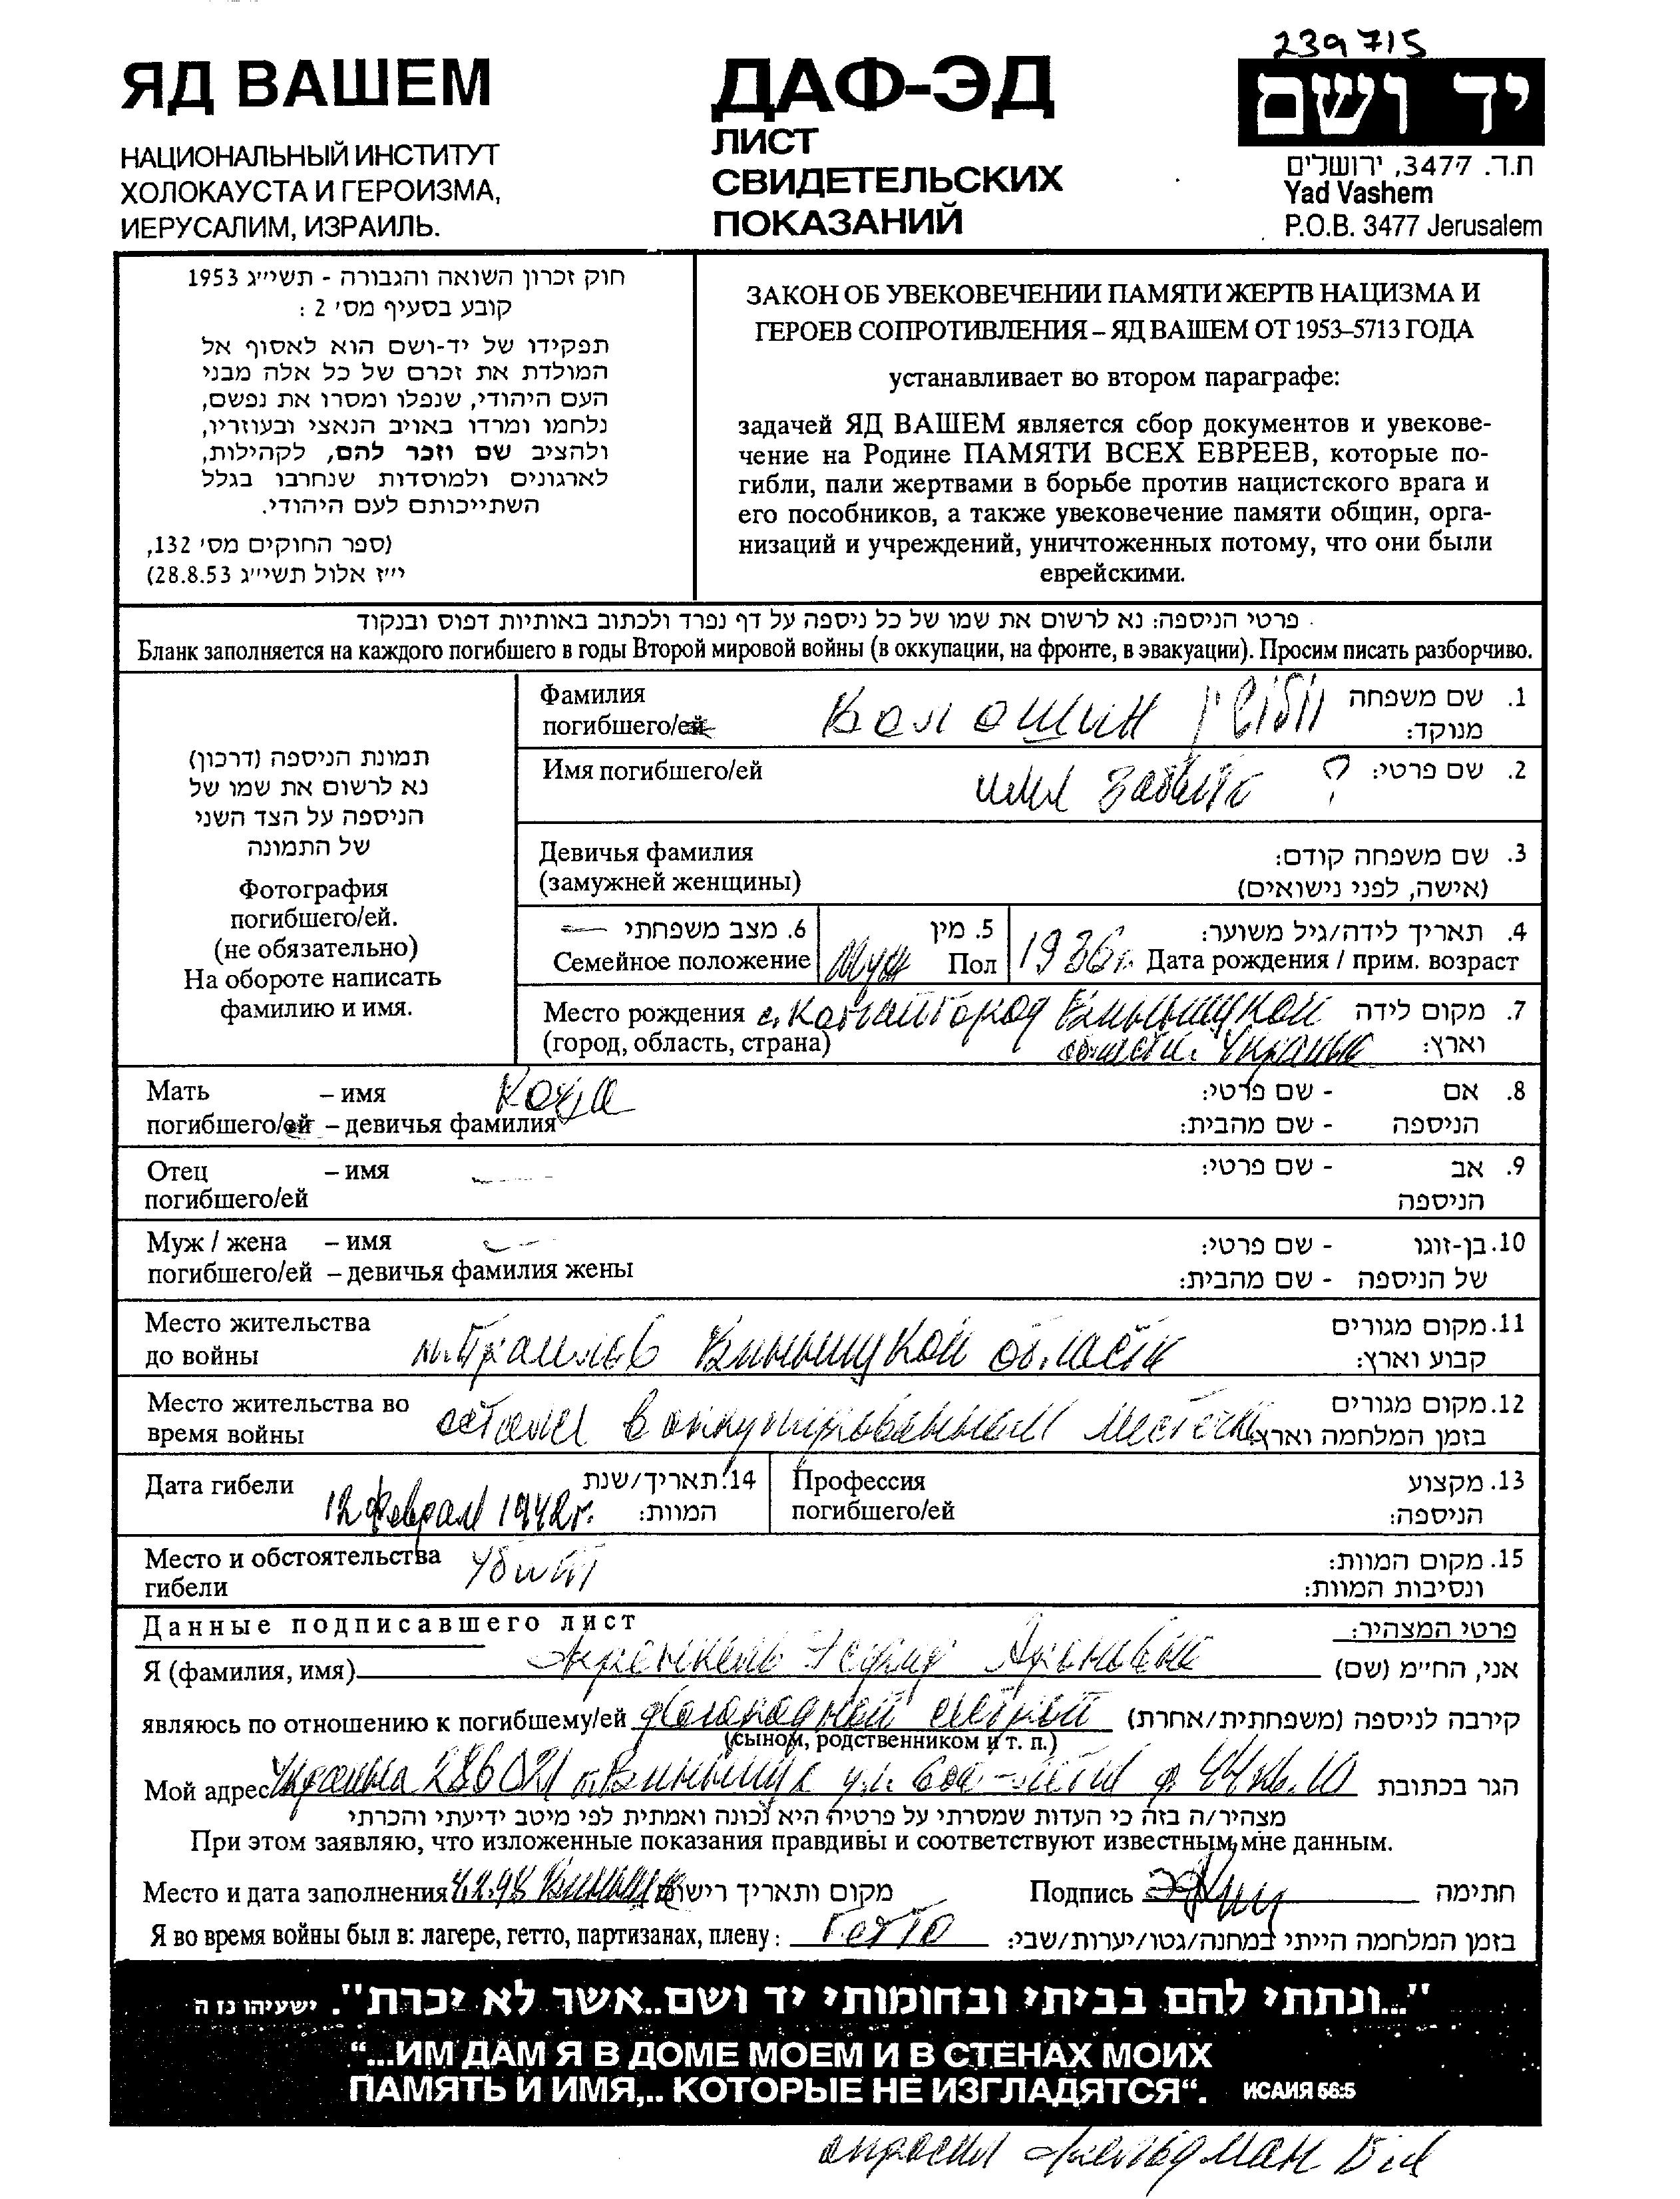 239715
ЯД ВАШЕМ
НАЦИОНАЛЬНЫЙ ИНСТИТУТ
ХОЛОКАУСТА И ГЕРОИЗМА,
ИЕРУСАЛИМ, ИЗРАИЛЬ.
ДАФ-ЭД
ЛИСТ
СВИДЕТЕЛЬСКИХ
ПОКАЗАНИЙ
יד ושם
ת.ד. 3477, ירושלים
Yad Vashem
P.O.B. 3477 Jerusalem
חוק זכרון השואה והגבורה - תשי״ג 1953
קובע בסעיף מס׳ 2 :
תפקידו של יד-ושם הוא לאסוף אל
המולדת את זכרם של כל אלה מבני
העם היהודי, שנפלו ומסרו את נפשם,
נלחמו ומרדו באויב הנאצי ובעוזריו,
ולהציב שם וזכר להם, לקהילות,
לארגונים ולמוסדות שנחרבו בגלל
השתייכותם לעם היהודי.
(ספר החוקים מס׳ 132,
י״ז אלול תשי״ג 28.8.53)
ЗАКОН ОБ УВЕКОВЕЧЕНИИ ПАМЯТИ ЖЕРТВ НАЦИЗМА И
ГЕРОЕВ СОПРОТИВЛЕНИЯ – ЯД ВАШЕМ ОТ 1953–5713 ГОДА
устанавливает во втором параграфе:
задачей ЯД ВАШЕМ является сбор документов и увекове-
чение на Родине ПАМЯТИ ВСЕХ ЕВРЕЕВ, которые по-
гибли, пали жертвами в борьбе против нацистского врага и
его пособников, а также увековечение памяти общин, орга-
низаций и учреждений, уничтоженных потому, что они были
еврейскими.
פרטי הניספה: נא לרשום את שמו של כל ניספה על דף נפרד ולכתוב באותיות דפוס ובנקוד
Бланк заполняется на каждого погибшего в годы Второй мировой войны (в оккупации, на фронте, в эвакуации). Просим писать разборчиво.
תמונת הניספה (דרכון)
נא לרשום את שמו של
הניספה על הצד השני
של התמונה
Фотография
погибшего/ей.
(не обязательно)
На обороте написать
фамилию и имя.
Фамилия
погибшего/ей Волошин וולושין 1. שם משפחה
מנוקד:
Имя погибшего/ей имя забыто ? 2. שם פרטי:
Девичья фамилия 3. שם משפחה קודם:
(замужней женщины) (אישה, לפני נישואים)
6. מצב משפחתי — 5. מין 4. תאריך לידה/גיל משוער:
Семейное положение Муж Пол 1936г. Дата рождения / прим. возраст
Место рождения с. Копайгород Винницкой 7. מקום לידה
(город, область, страна) области Украина וארץ:
Мать – имя Хона 8. אם - שם פרטי:
погибшего/ей – девичья фамилия הניספה - שם מהבית:
Отец – имя — 9. אב - שם פרטי:
погибшего/ей הניספה
Муж / жена – имя — 10. בן-זוגו - שם פרטי:
погибшего/ей – девичья фамилия жены של הניספה - שם מהבית:
Место жительства 11. מקום מגורים
до войны Винницкой области קבוע וארץ:
Место жительства во 12. מקום מגורים
время войны в оккупированном местечке בזמן המלחמה וארץ:
Дата гибели 12 Февраля 1942г. 14. תאריך/שנת
המוות:
Профессия 13. מקצוע
погибшего/ей הניספה:
Место и обстоятельства Убит 15. מקום המוות:
гибели ונסיבות המוות:
Данные подписавшего лист פרטי המצהיר:
Я (фамилия, имя) Френкель Эдуард אני, החי״מ (שם)
являюсь по отношению к погибшему/ей קירבה לניספה (משפחתית/אחרת)
(сыном, родственником и т. п.)
Мой адрес Украина 286021 г. Винница ул. 600-летия д. 44 кв. 10 הגר בכתובת
מצהיר/ה בזה כי העדות שמסרתי על פרטיה היא נכונה ואמתית לפי מיטב ידיעתי והכרתי
При этом заявляю, что изложенные показания правдивы и соответствуют известным мне данным.
Место и дата заполнения Винница מקום ותאריך רישום Подпись חתימה
Я во время войны был в: лагере, гетто, партизанах, плену: Гетто בזמן המלחמה הייתי במחנה/גטו/יערות/שבי:
"...ונתתי להם בביתי ובחומותי יד ושם..אשר לא יכרת". ישעיהו נו ה
“...ИМ ДАМ Я В ДОМЕ МОЕМ И В СТЕНАХ МОИХ
ПАМЯТЬ И ИМЯ,.. КОТОРЫЕ НЕ ИЗГЛАДЯТСЯ“. ИСАИЯ 56:5
опросил Фельдман